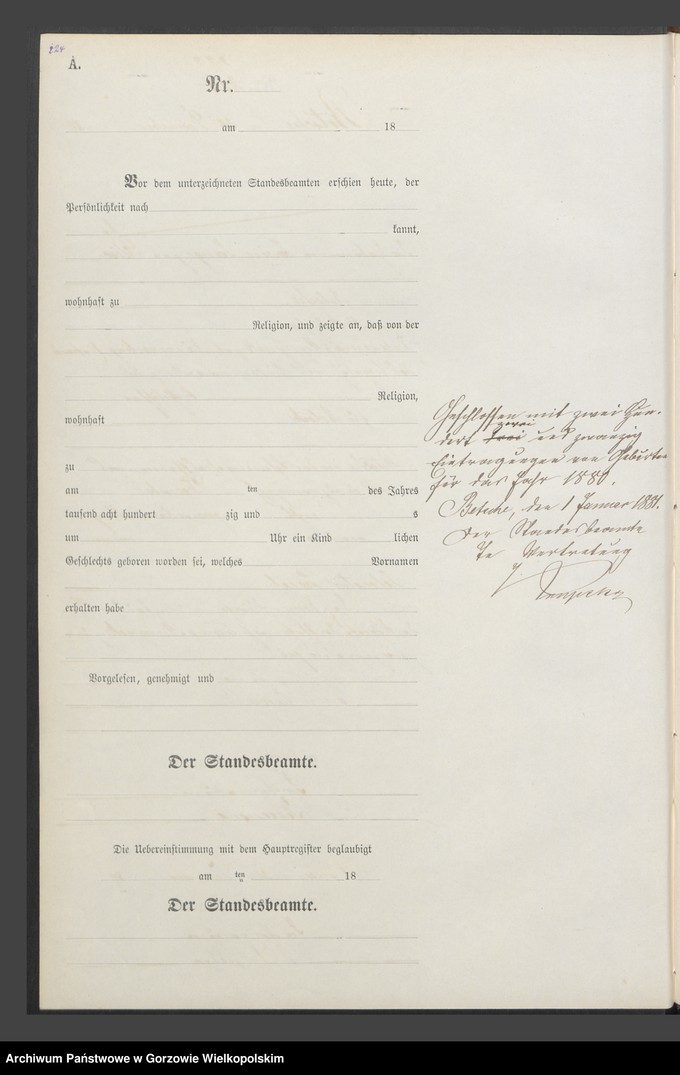 224
A.
Nr.
am 18
Vor dem unterzeichneten Standesbeamten erschien heute, der
Persönlichkeit nach
kannt,
wohnhaft zu
Religion, und zeigte an, daß von der
Religion,
wohnhaft
zu
am ten des Jahres
tausend acht hundert zig und s
um Uhr ein Kind lichen
Geschlechts geboren worden sei, welches Vornamen
erhalten habe
Vorgelesen, genehmigt und
Der Standesbeamte.
Die Uebereinstimmung mit dem Hauptregister beglaubigt
am ten 18
Der Standesbeamte.
Geschlossen mit zwei Hun-
zwei
dert drei und zwanzig
Eintragungen von Geburten
für das Jahr 1880.
Betsche, den 1 Januar 1881.
Der Standesbeamte
In Vertretung
Archiwum Państwowe w Gorzowie Wielkopolskim